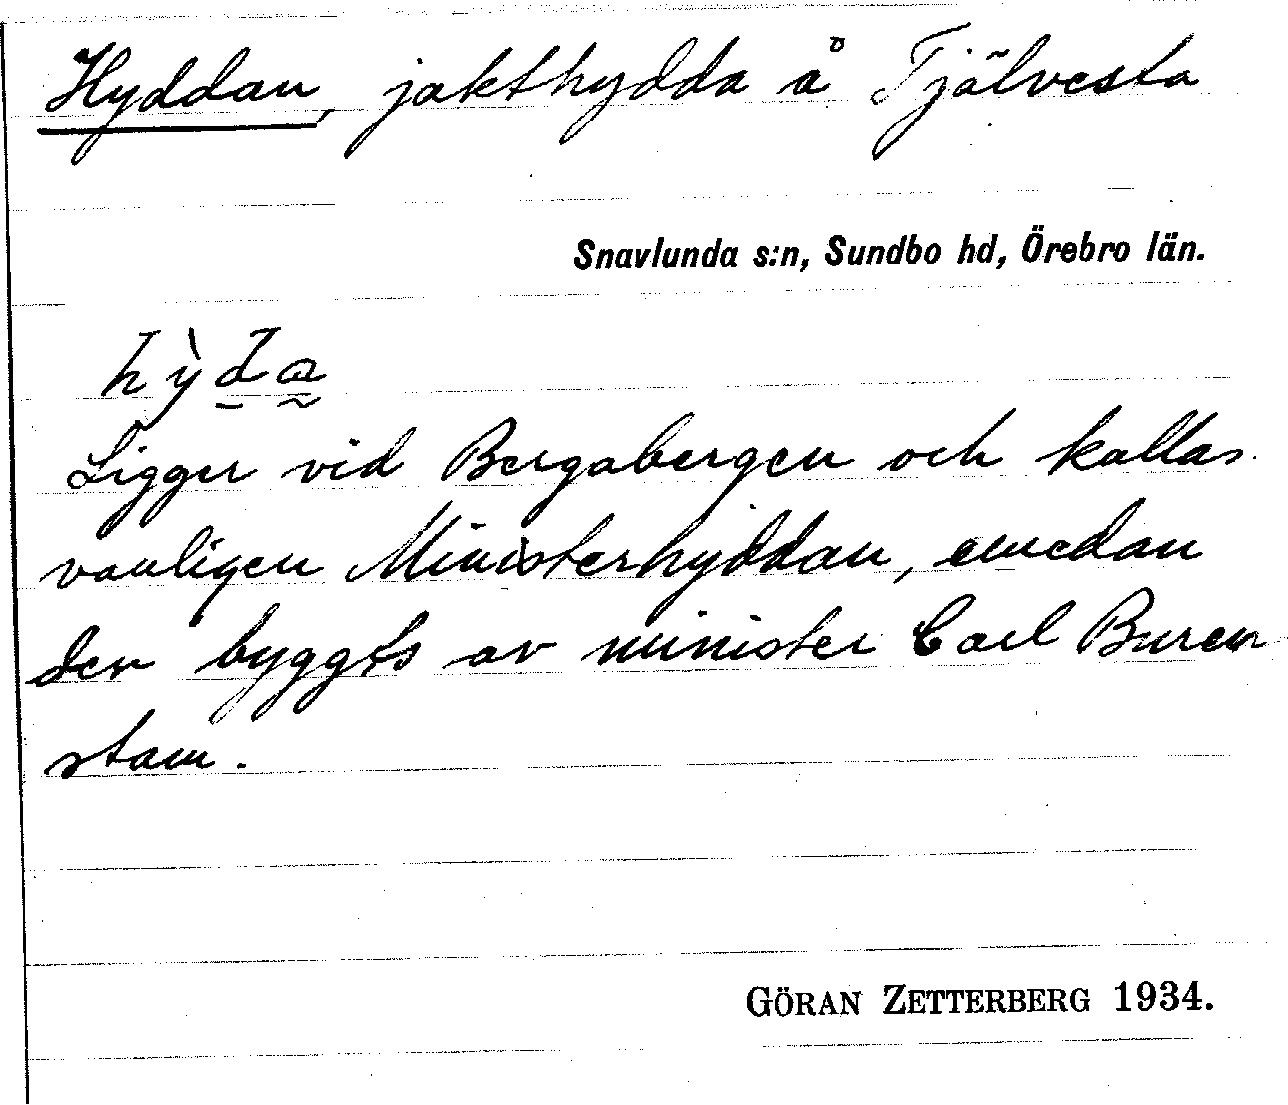 Hyddan, jakthydda å Tjälvesta
Snavlunda s:n, Sundbo hd, Örebro län.
hỳda
Ligger vid Bergabergen och kallas
vanligen Ministerhyddan, emedan
den byggts av minister Carl Buren
stam.
GÖRAN ZETTERBERG 1934.